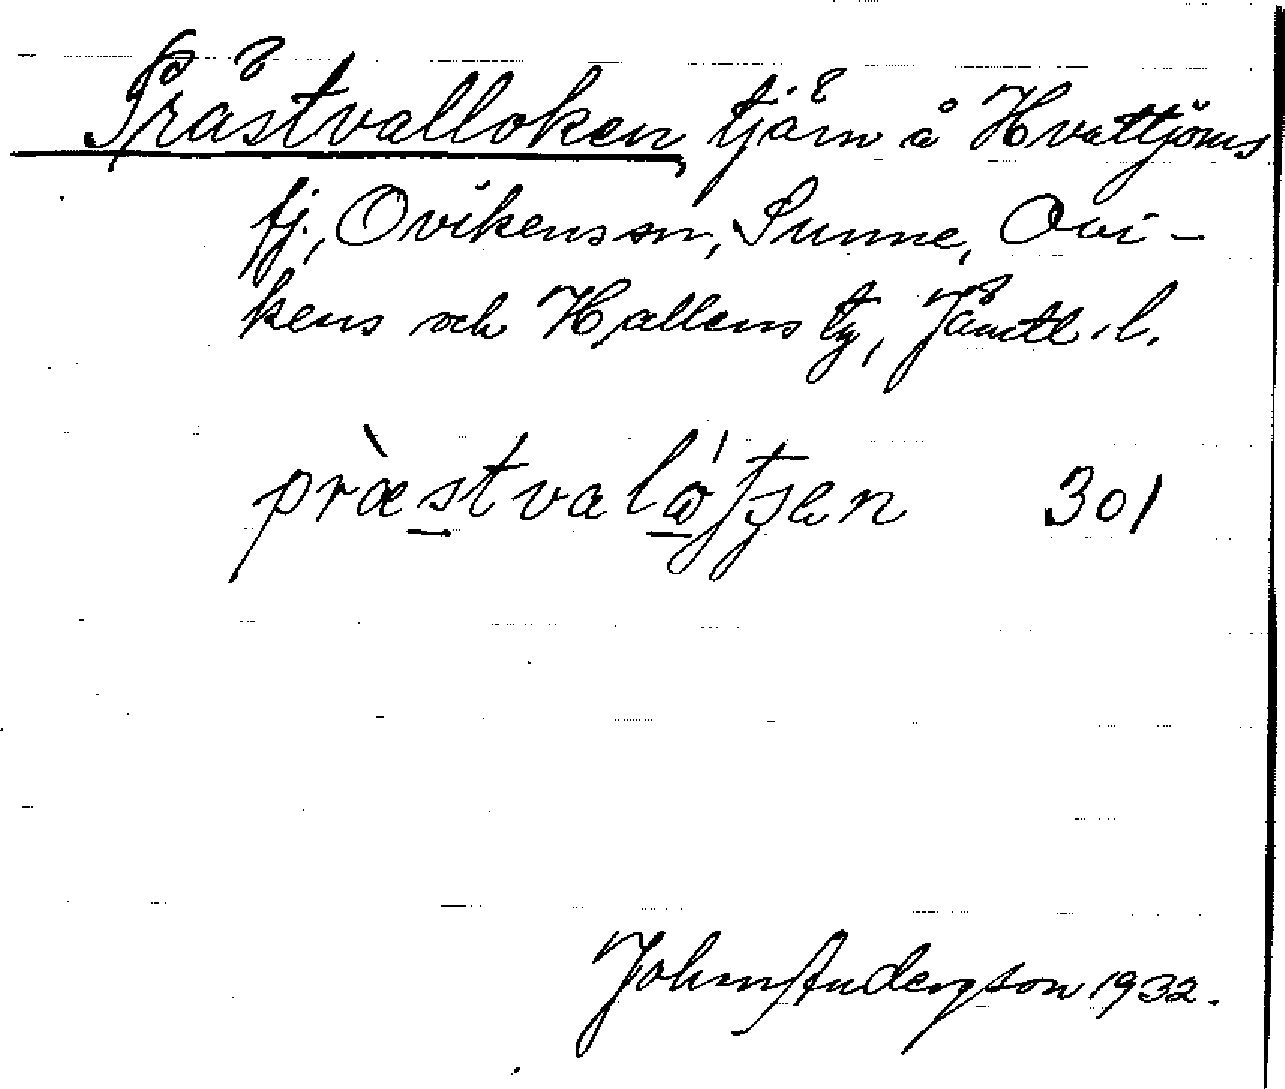 Prästvalloken, tjärn å Hvattjoms
fj., Ovikens sn, Sunne, Ovi-
kens och Hallens tg, Jämtl. l.
præstvalåʃtʃen 301
John Anderson 1932.